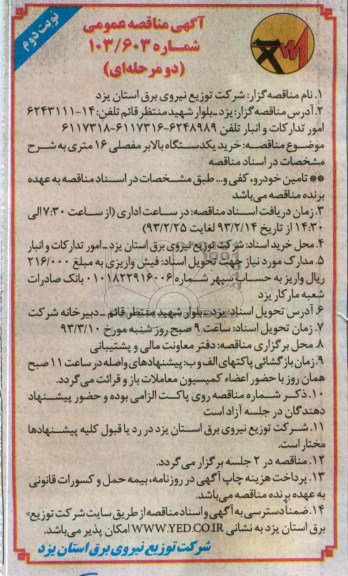 نوبت دوم
آگهی مناقصه عمومی
شماره ۱۰۳/۶۰۳
(دو مرحله‌ای)
۱. نام مناقصه گزار: شرکت توزیع نیروی برق استان یزد
۲. آدرس مناقصه گزار: یزد_بلوار شهید منتظر قائم تلفن: ۱۴-۶۲۴۳۱۱۱
امور تدارکات و انبار تلفن ۶۲۴۸۹۸۹-۶۱۱۷۳۱۶-۶۱۱۷۳۱۸
موضوع مناقصه: خرید یکدستگاه بالابر مفصلی ۱۶ متری به شرح
مشخصات در اسناد مناقصه
** تامین خودرو، کفی و... طبق مشخصات در اسناد مناقصه به عهده
برنده مناقصه می‌باشد
۳. زمان دریافت اسناد مناقصه: در ساعت اداری (از ساعت ۷:۳۰ الی
۱۴:۳۰ از تاریخ ۹۳/۲/۱۴ لغایت ۹۳/۲/۲۵)
۴. محل خرید اسناد: شرکت توزیع نیروی برق استان یزد_امور تدارکات و انبار
۵. مدارک مورد نیاز جهت تحویل اسناد: فیش واریزی به مبلغ ۲۱۶/۰۰۰
ریال واریز به حساب سپهر شماره ۰۱۰۱۸۲۲۹۱۶۰۰۶ بانک صادرات
شعبه مارکار یزد
۶. آدرس تحویل اسناد: یزد_بلوار شهید منتظر قائم _ دبیرخانه شرکت
۷. زمان تحویل اسناد: ساعت ۹ صبح روز شنبه مورخ ۹۳/۳/۱۰
۸. محل برگزاری مناقصه: دفتر معاونت مالی و پشتیبانی
۹. زمان بازگشائی پاکتهای الف و ب: پیشنهادهای واصله در ساعت ۱۱ صبح
همان روز با حضور اعضاء کمیسیون معاملات باز و قرائت می‌گردد.
۱۰. ذکر شماره مناقصه روی پاکت الزامی بوده و حضور پیشنهاد
دهندگان در جلسه آزاد است
۱۱. شرکت توزیع نیروی برق استان یزد در رد یا قبول کلیه پیشنهادها
مختار است.
۱۲. مناقصه در ۲ جلسه برگزار می گردد.
۱۳. پرداخت هزینه چاپ آگهی در روزنامه، بیمه حمل و کسورات قانونی
به عهده برنده مناقصه می‌باشد.
۱۴. ضمناً دسترسی به آگهی و اسناد مناقصه از طریق سایت شرکت توزیع
برق استان یزد به نشانی WWW.YED.CO.IR امکان پذیر می‌باشد.
شرکت توزیع نیروی برق استان یزد